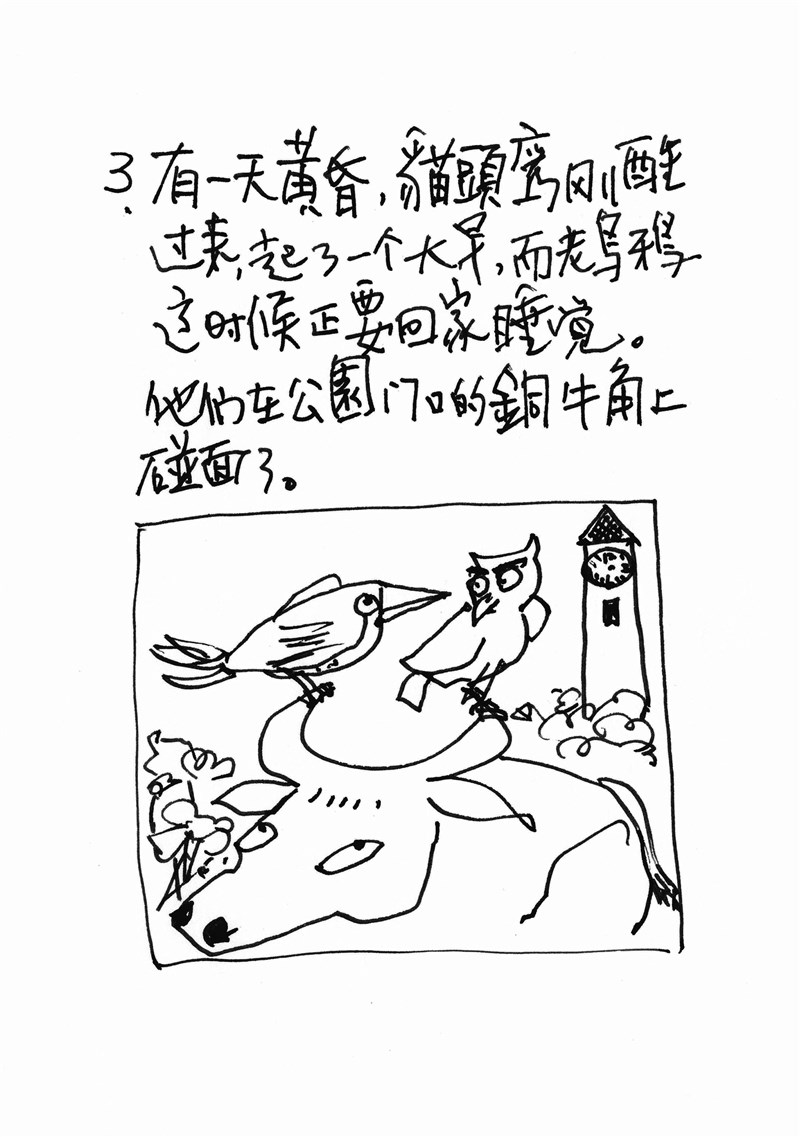 3. 有一天黄昏，貓頭鹰刚醒
过来，起了一个大早，而老鸟鸦
这时候正要回家睡觉。
他们在公園门口的銅牛角上
碰面了。